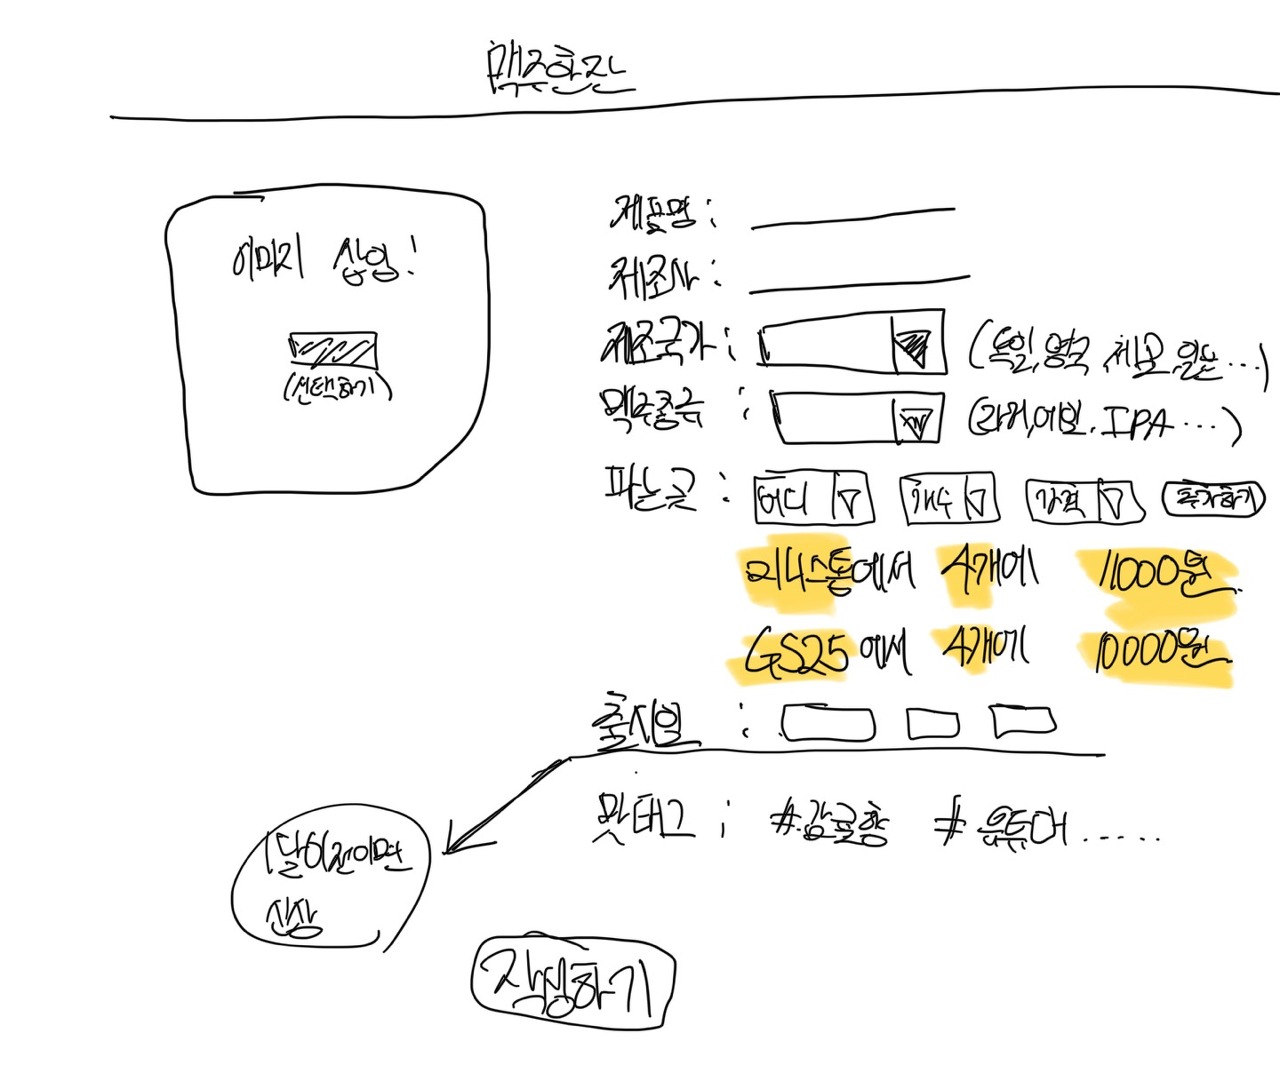 맥주한잔
이미지 삽입!
(선택하기)
제품명 :
제조사 :
제조국가 : (독일, 영국, 체코, 일본...)
맥주종류 : (라거, 에일, IPA...)
파는곳 : 어디 개수 가격 추가하기
미니스톱에서 4개에 11000원
GS25에서 4개에 10000원
출시일 :
맛태그 : #감귤향 #.....
1달이전이면
신상
작성하기